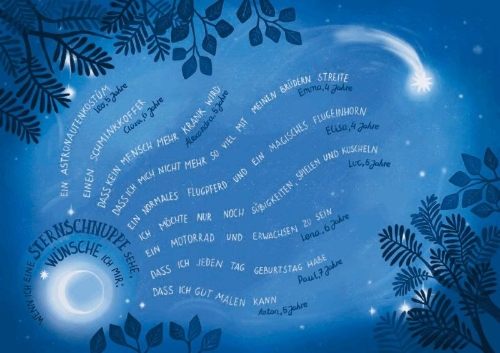 WENN ICH EINE STERNSCHNUPPE SEHE,
WÜNSCHE ICH MIR:
EIN ASTRONAUTENKOSTÜM
Leo, 5 Jahre
EINEN SCHMINKKOFFER
Clara, 6 Jahre
DASS KEIN MENSCH MEHR KRANK WIRD
Alexandra, 5 Jahre
DASS ICH MICH NICHT MEHR SO VIEL MIT MEINEN BRÜDERN STREITE
Emma, 4 Jahre
EIN NORMALES FLUGPFERD UND EIN MAGISCHES FLUGEINHORN
Elisa, 4 Jahre
ICH MÖCHTE NUR NOCH SÜßIGKEITEN, SPIELEN UND KUSCHELN
Luc, 5 Jahre
EIN MOTORRAD UND ERWACHSEN ZU SEIN
Lena, 6 Jahre
DASS ICH JEDEN TAG GEBURTSTAG HABE
Paul, 7 Jahre
DASS ICH GUT MALEN KANN
5 Jahre